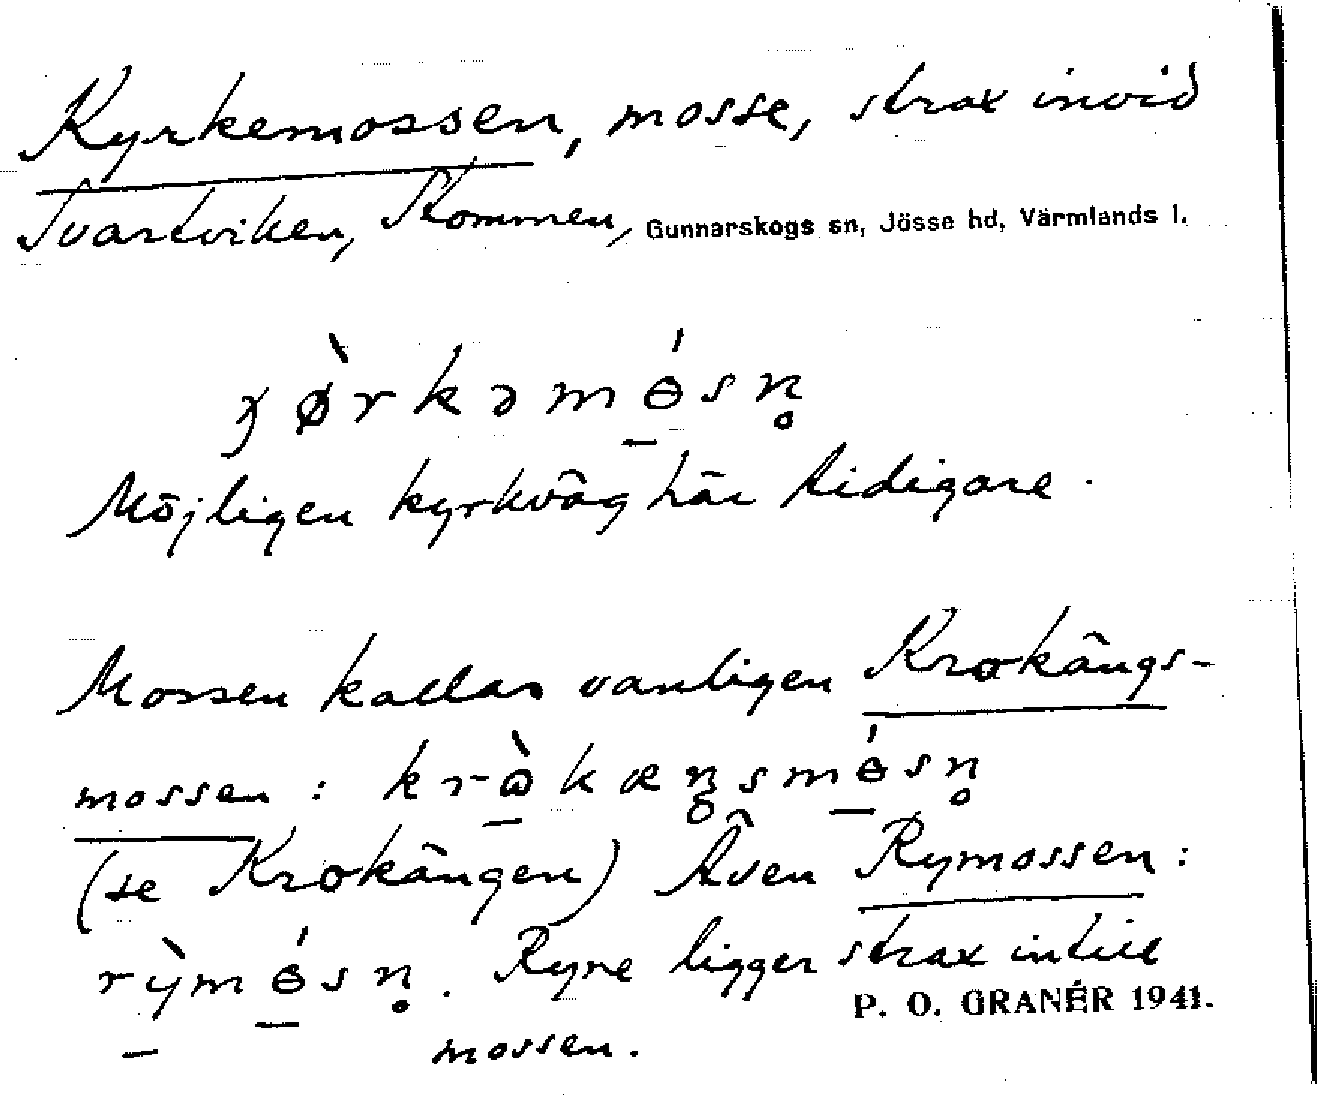 Kyrkemossen, mosse, strax invid
Svartviken, Stommen, Gunnarskogs sn, Jösse hd, Värmlands l.
Möjligen kyrkväg här tidigare.
Mossen kallas vanligen Krokängs-
mossen:
(se Krokängen) Även Rymossen:
Ryne ligger strax intill
P. O. GRANÉR 1941.
mossen.